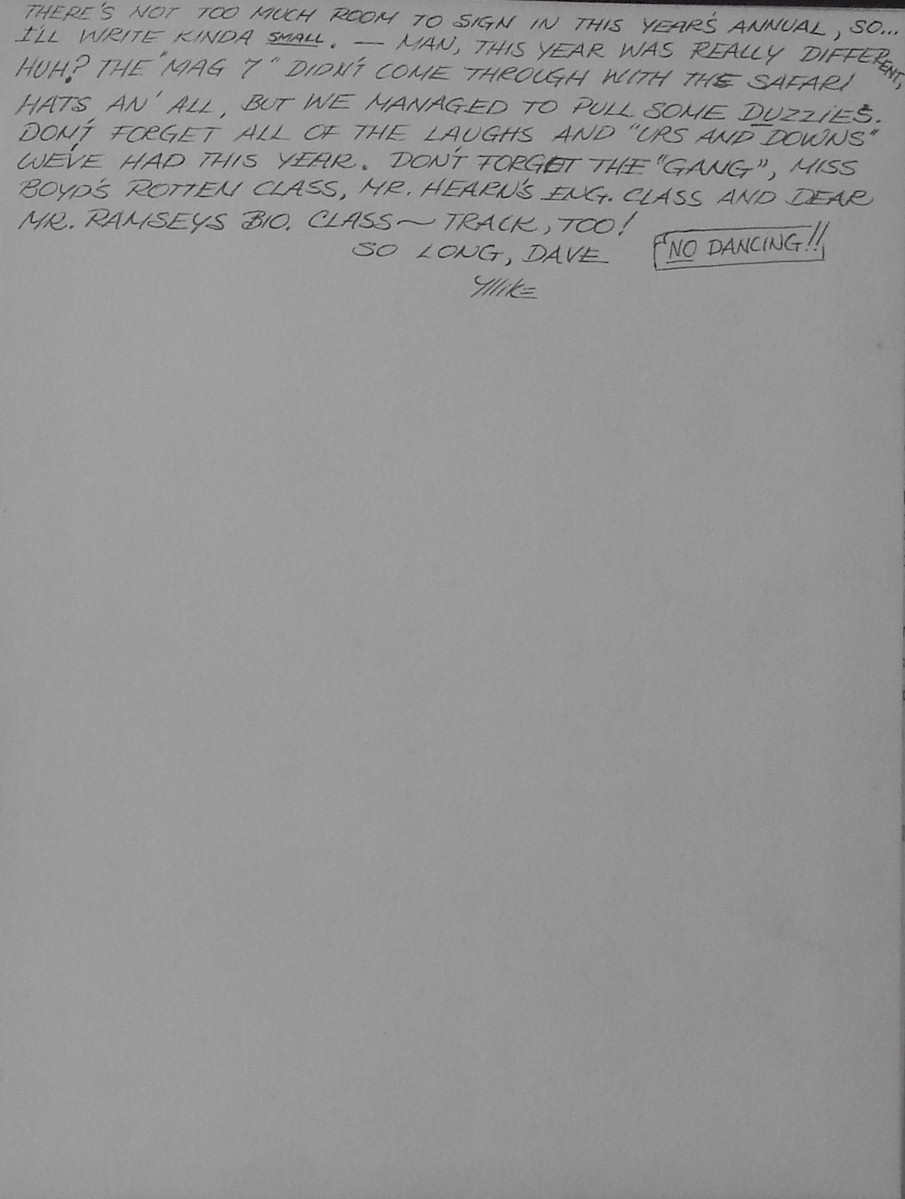 THERE'S NOT TOO MUCH ROOM TO SIGN IN THIS YEAR'S ANNUAL, SO...
I'LL WRITE KINDA SMALL. — MAN, THIS YEAR WAS REALLY DIFFERENT,
HUH? THE "MAG 7" DIDN'T COME THROUGH WITH THE SAFARI
HATS AN' ALL, BUT WE MANAGED TO PULL SOME DUZZIES.
DON'T FORGET ALL OF THE LAUGHS AND "UPS AND DOWNS"
WE'VE HAD THIS YEAR. DON'T FORGET THE "GANG", MISS
BOYD'S ROTTEN CLASS, MR. HEARN'S ENG. CLASS AND DEAR
MR. RAMSEYS BIO. CLASS~ TRACK, TOO!
SO LONG, DAVE
NO DANCING!!
Mike